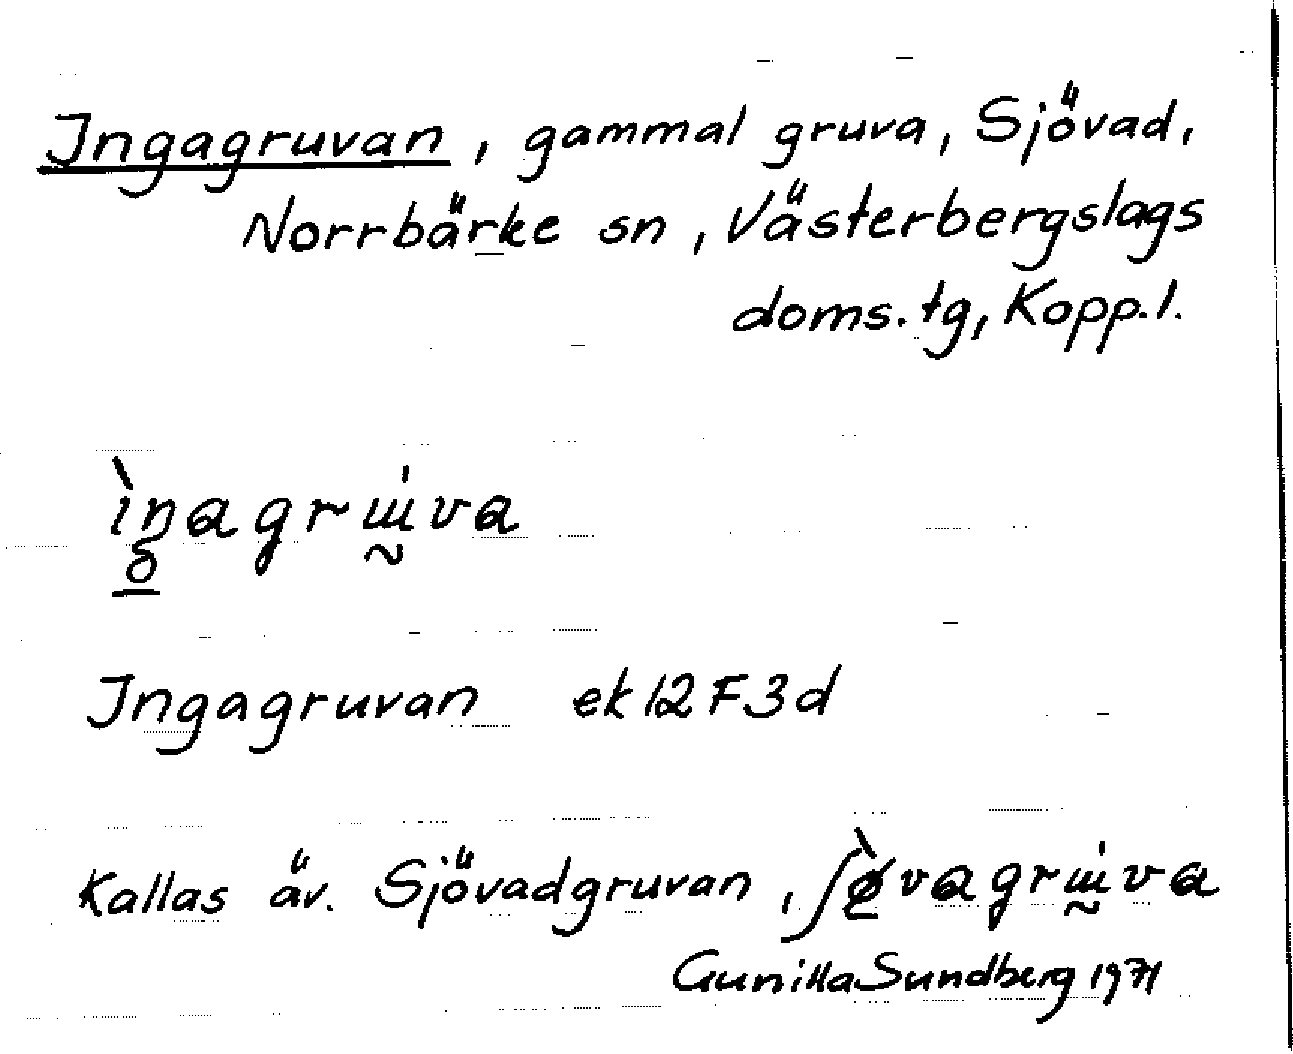 Ingagruvan, gammal gruva, Sjövad,
Norrbärke sn, Västerbergslags
doms.tg, Kopp.l.
ìŋagrɯ́va
Ingagruvan ek 12F3d
Kallas äv. Sjövadgruvan, ʃø̀vagrɯ́va
Gunilla Sundberg 1971